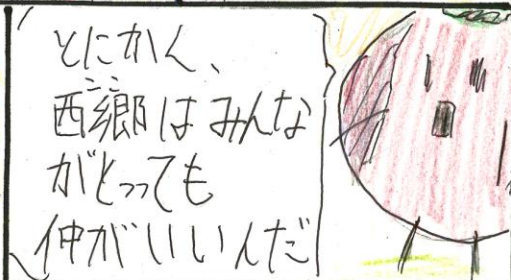 とにかく、
西郷はみんな
がとっても
仲がいいんだ